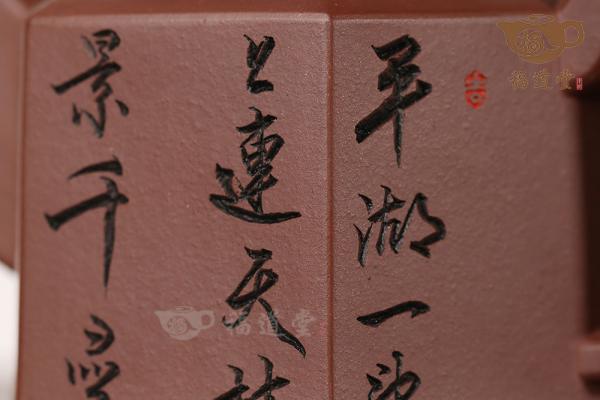 平湖一
上連天
景千
福道堂
福道堂